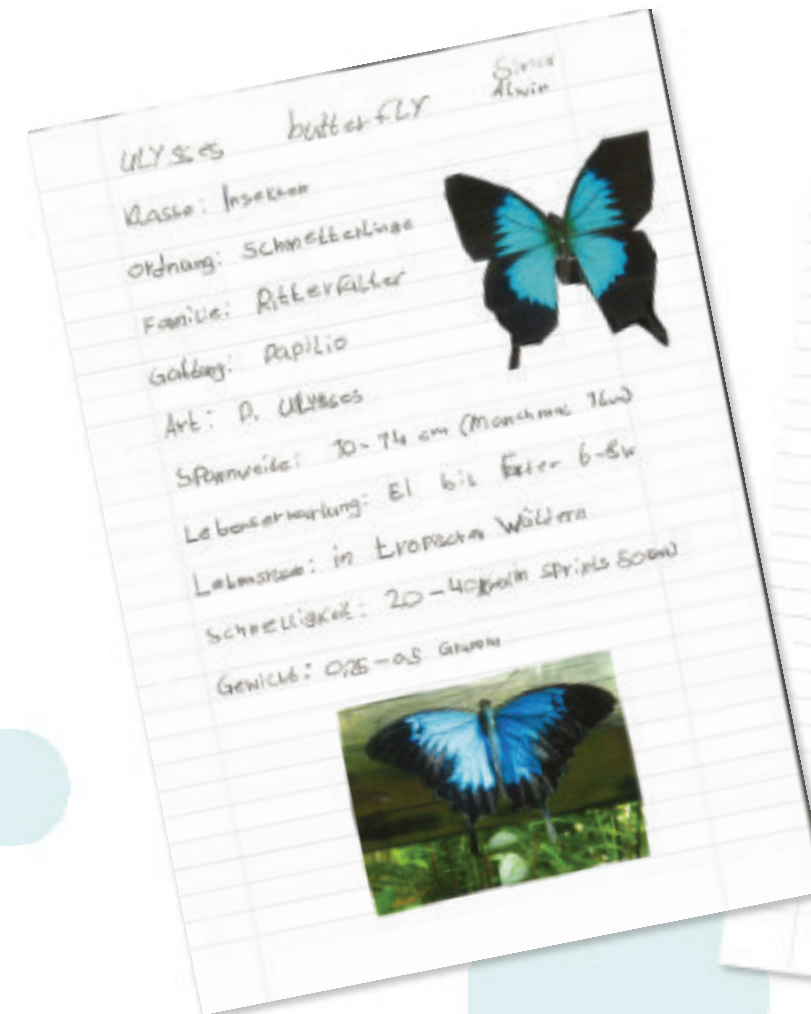 ULYsses butterFLY
Alwin
Klasse: Insekten
Ordnung: Schmetterlinge
Familie: RitterFalter
Gattung: Papilio
Art: P. ULYsses
Spannweite: 10-14 cm (Manchmal
Lebenserwartung: EI bis 6-8w
in tropischen Wäldern
Schnelligkeit: 20-40 sprints
Gewicht: 0,25-0,5 Gramm